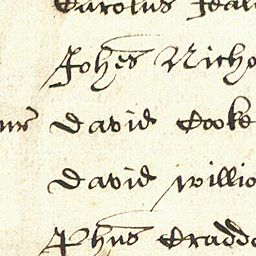 Carolus
Johes Nicho
David Cooke
David Willia
Phus Cradd